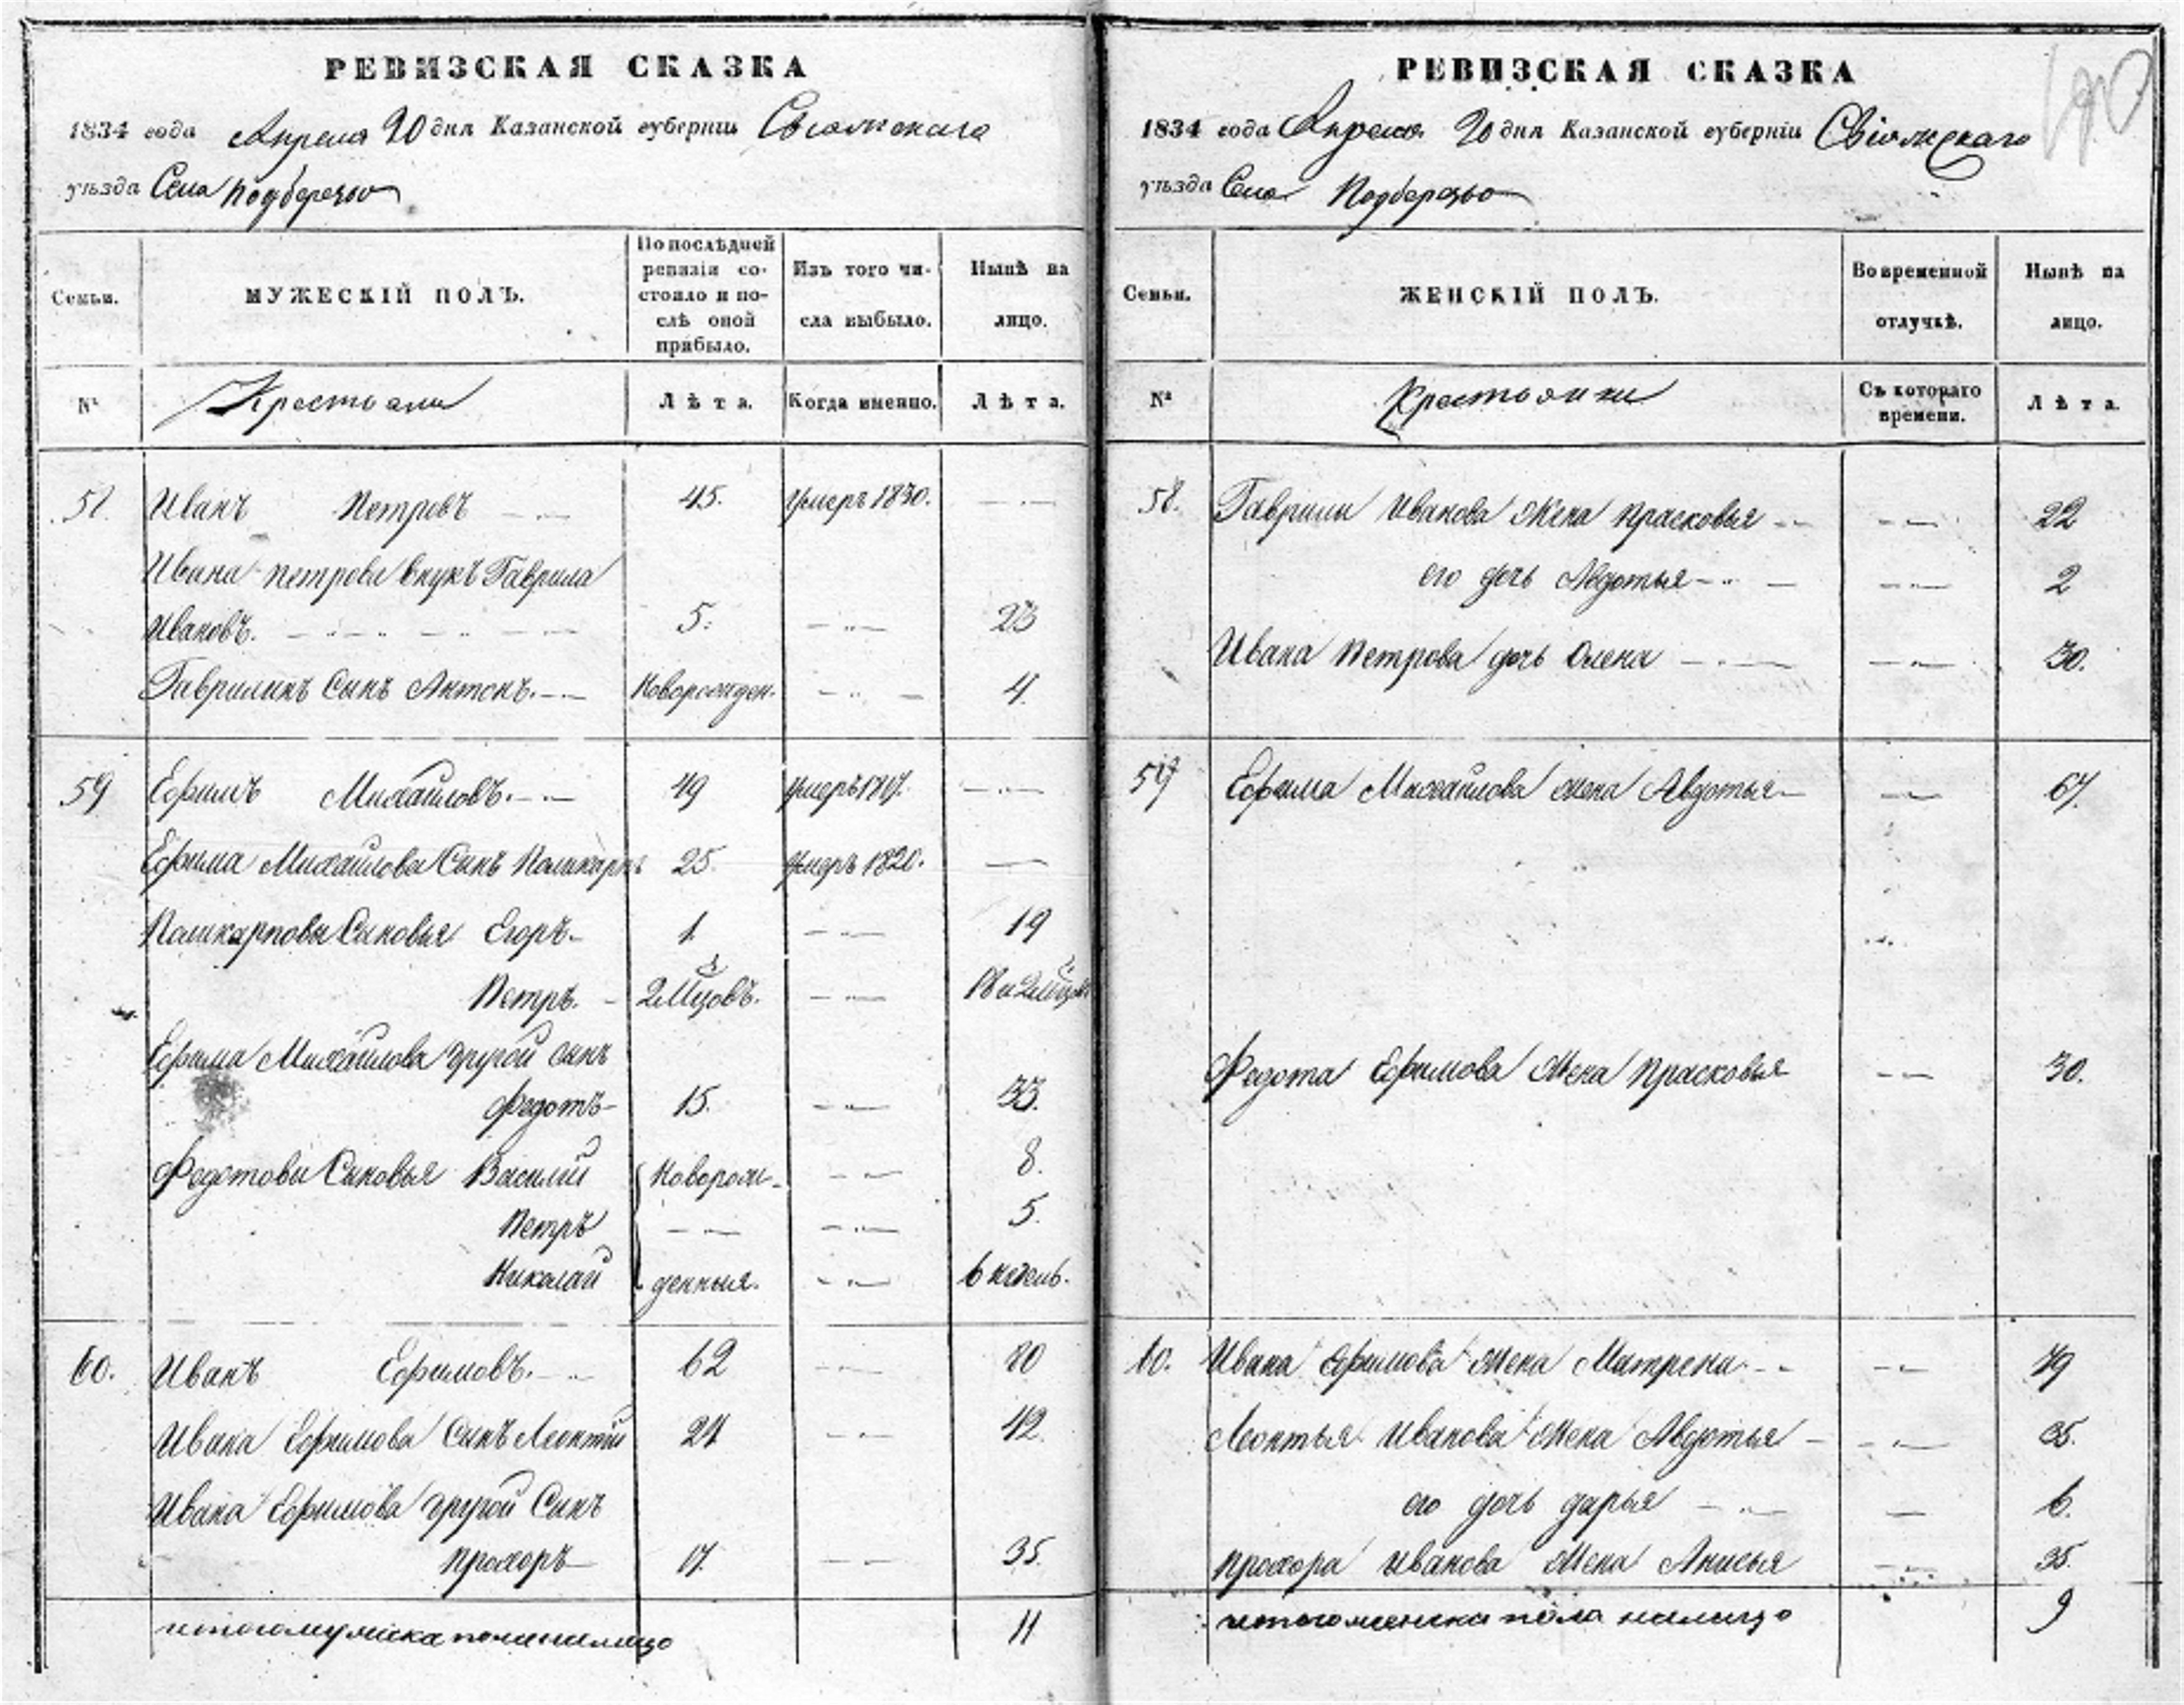 РЕВИЗСКАЯ СКАЗКА
1834 года Апреля 20 дня Казанской губерніи Свіяжскаго
уѣзда Села Подберезья
Семьи.
МУЖЕСКІЙ ПОЛЪ.
По послѣдней ревизіи состояло и послѣ оной прибыло.
Изъ того числа выбыло.
Нынѣ на лицо.
№
Крестьяне
Лѣта.
Когда именно.
Лѣта.
Иванъ Петровъ 45. умеръ 1830.
Ивана Петрова внукъ Гаврила
Ивановъ. 5. 23
Гаврилинъ Сынъ Антонъ. Новорожден. 4.
59 Ефимъ Михайловъ. 49
Ефима Михайлова Сынъ Поликарпъ 25. умеръ 1820.
Поликарповы Сыновья Егоръ 1. 19
Петръ. 2 мцовъ. 18 и 2 мцов
Ефима Михайлова другой сынъ
Федотъ 15. 33.
Федотовы Сыновья Василий Новорож- 8.
Петръ 5.
Николай денныя. 6 недель.
60. Иванъ Ефимовъ. 62 80
Ивана Ефимова Сынъ Леонтий 24 42.
Ивана Ефимова другой Сынъ
Прохоръ 17. 35.
итого мужска пола на лицо 11
РЕВИЗСКАЯ СКАЗКА
1834 года Апреля 20 дня Казанской губерніи Свіяжскаго
уѣзда Села Подберезья
Семьи.
ЖЕНСКІЙ ПОЛЪ.
Во временной отлучкѣ.
Нынѣ на лицо.
№
Крестьянки
Съ котораго времени.
Лѣта.
58. Гаврилы Иванова жена Прасковья 22
его дочь Авдотья 2
Ивана Петрова дочь Олена 30.
59 Ефима Михайлова жена Авдотья 67.
Федота Ефимова жена Прасковья 30.
60. Ивана Ефимова жена Матрена
Леонтья Иванова жена Авдотья 35.
его дочь Дарья 6.
Прохора Иванова жена Анисья 35.
итого женска пола на лицо 9